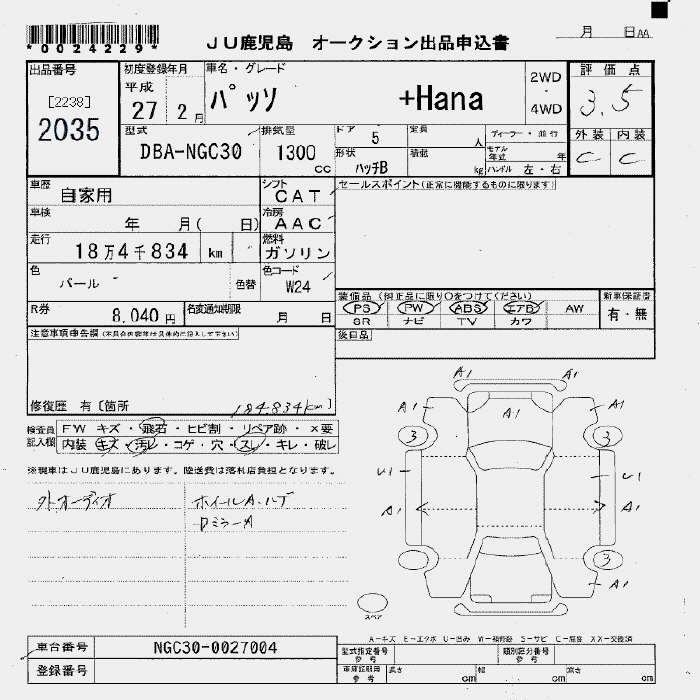 *0024229*
JU鹿児島 オークション出品申込書
月 日AA
出品番号
[2238]
2035
初度登録年月
平成
27 2月
車名・グレード
パッソ +Hana
2WD
・
4WD
評価点
3.5
外装 内装
C C
型式
DBA-NGC30
排気量
1300
cc
ドア
5
定員
人
ディーラー・並行
モデル
年式 年
形状
ハッチB
積載
kg
ハンドル 左・右
車歴
自家用
シフト
CAT
車検
年 月( 日)
冷房
AAC
走行
18万4千834 km
燃料
ガソリン
色
パール
色替
色コード
W24
R券
8,040 円
名変通知期限
月 日
セールスポイント(正常に機能するものに限ります)
装備品(純正品に限り○をつけてください)
PS PW ABS エアB AW
SR ナビ TV カワ
新車保証書
有・無
後日品
注意事項申告欄
修復歴 有〔箇所
184.834km〕
検査員
記入欄
FW キズ・飛石・ヒビ割・リペア跡・×要
内装 キズ・汚レ・コゲ・穴・スレ・キレ・破レ
※現車はJU鹿児島にあります。陸送費は落札店負担となります。
外オーディオ
A1 A1
A1 A1 A1
3 3
U1 U1
A1 A1
3
A1 A1
スペア
A−キズ E−エクボ U−凹み W−補修跡 S−サビ C−腐食 XX−交換済
車台番号
NGC30-0027004
登録番号
型式指定番号
参考
類別区分番号
参考
車庫証明用
参考
長さ cm
幅 cm
高さ cm